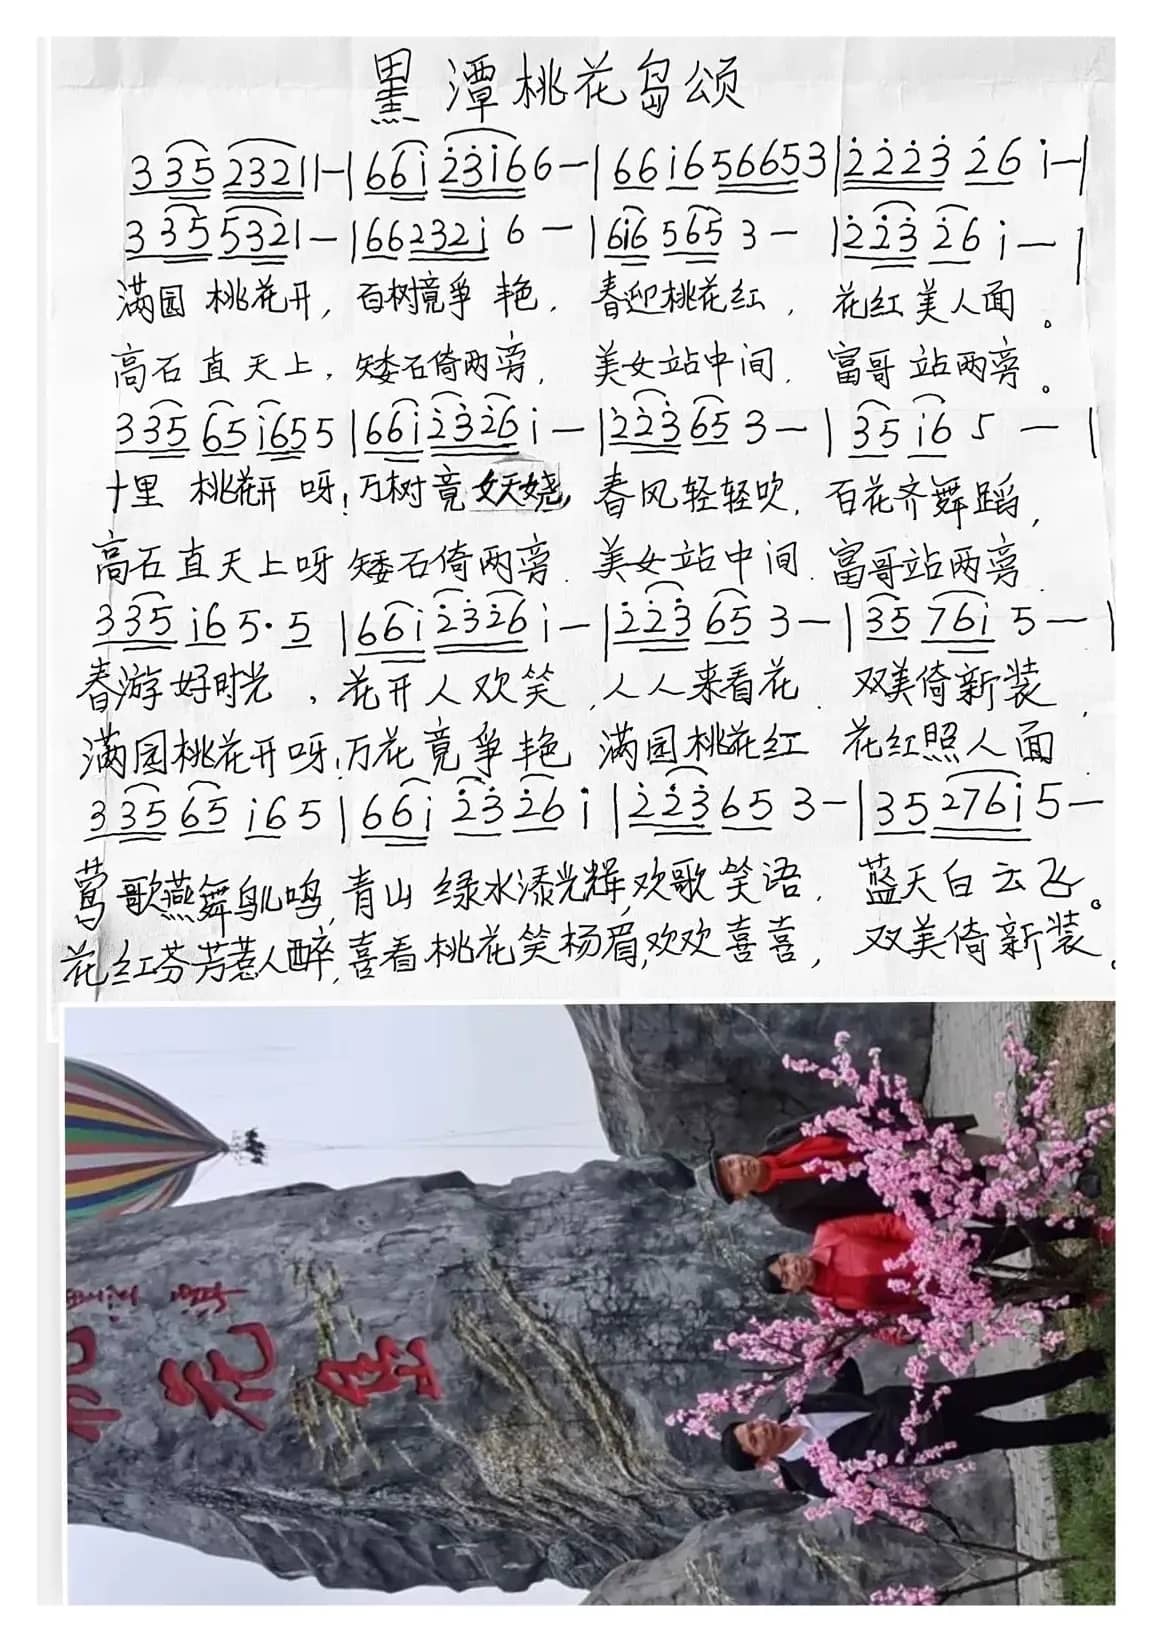 黑潭桃花岛颂
3 3 5 2 3 2 1 1 — | 6 6 i 2̇ 3̇ i 6 6 — | 6 6 i 6 5 6 6 5 3 | 2̇ 2̇ 2̇ 3̇ 2̇ 6 i — |
3 3 5 5 3 2 1 — | 6 6 2 3 2 i 6 — | 6 i 6 5 6 5 3 — | 2̇ 2̇ 3̇ 2̇ 6 i — |
满园桃花开，百树竟争艳，春迎桃花红，花红美人面。
高石直天上，矮石倚两旁，美女站中间，富哥站两旁。
3 3 5 6 5 i 6 5 5 | 6 6 i 2̇ 3̇ 2̇ 6 i — | 2̇ 2̇ 3̇ 6 5 3 — | 3 5 i 6 5 — |
十里桃花开呀！万树竟妖娆，春风轻轻吹，百花齐舞蹈，
高石直天上呀矮石倚两旁．美女站中间．富哥站两旁．
3 3 5 i 6 5· 5 | 6 6 i 2̇ 3̇ 2̇ 6 i — | 2̇ 2̇ 3̇ 6 5 3 — | 3 5 7 6 i 5 — |
春游好时光，花开人欢笑，人人来看花．双美倚新装，
满园桃花开呀！万花竟争艳 满园桃花红 花红照人面．
3 3 5 6 5 i 6 5 | 6 6 i 2̇ 3̇ 2̇ 6 i | 2̇ 2̇ 3̇ 6 5 3 — | 3 5 2 7 6 i 5 —
莺歌燕舞鸟儿鸣，青山绿水添光辉，欢歌笑语，蓝天白云飞。
花红芬芳惹人醉，喜看桃花笑杨眉，欢欢喜喜，双美倚新装。
黑潭
桃花岛